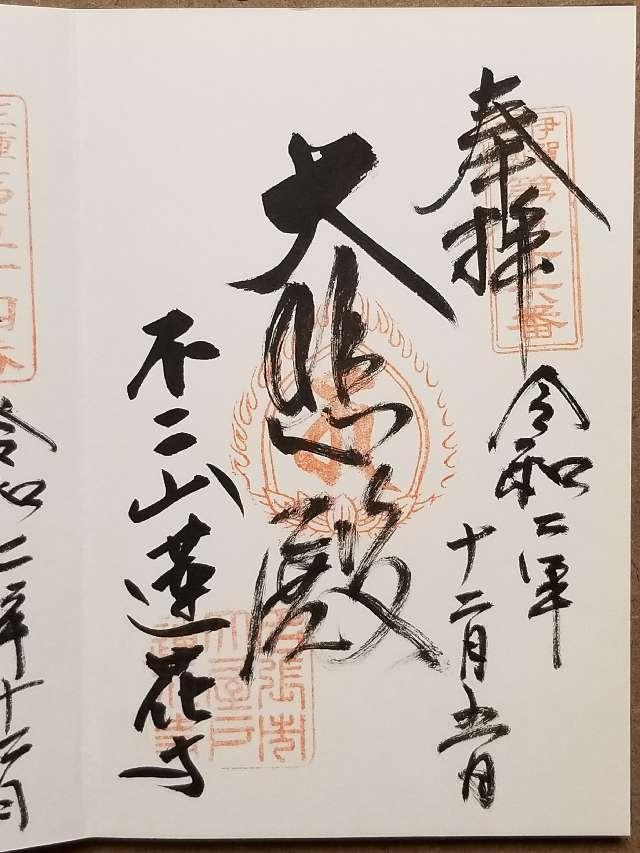 奉拝
伊賀
令和二年
十二月五日
大悲殿
不二山蓮花寺
名張市
令和二年十二月